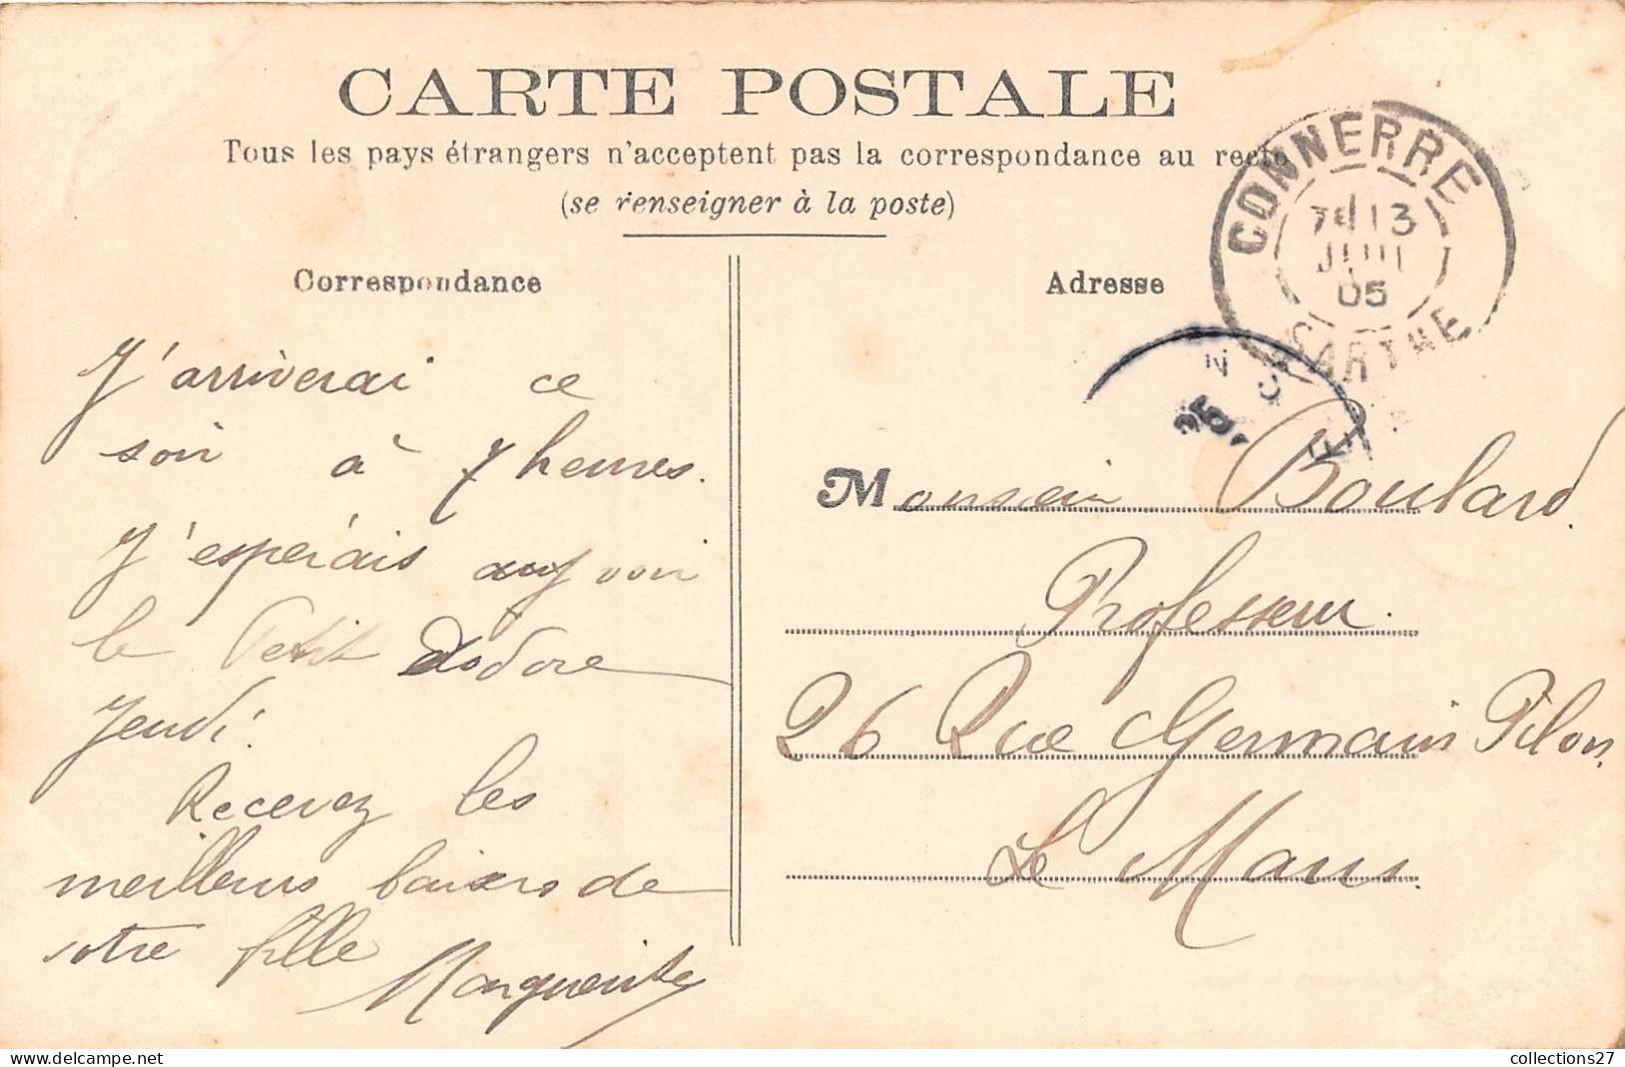 CARTE POSTALE
Tous les pays étrangers n'acceptent pas la correspondance au recto
(se renseigner à la poste)
Correspondance
J'arriverai ce
soir à 7 heures.
J'espérais voir
le Petit Isidore
Jeudi.
Recevez les
meilleurs baisers de
votre fille
Marguerite
Adresse
CONNERRE
7E 13
JUIN
05
SARTHE
Monsieur Boulard.
Professeur.
26 Rue Germain Pilon.
Le Mans.
collections27